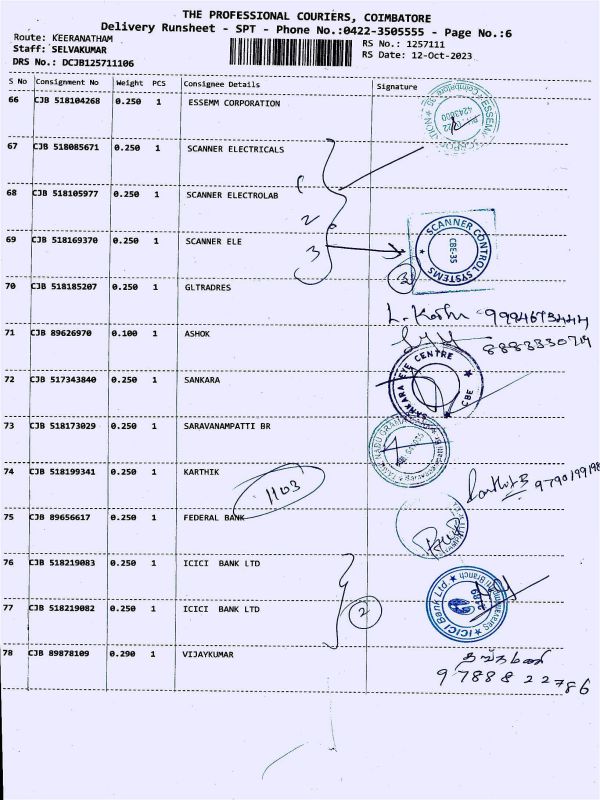 THE PROFESSIONAL COURIERS, COIMBATORE
Delivery Runsheet - SPT - Phone No.:0422-3505555 - Page No.:6
Route: KEERANATHAM
Staff: SELVAKUMAR
DRS No.: DCJB125711106
RS No.: 1257111
RS Date: 12-Oct-2023
S No Consignment No Weight PCS Consignee Details Signature
66 CJB 518104268 0.250 1 ESSEMM CORPORATION
67 CJB 518085671 0.250 1 SCANNER ELECTRICALS
68 CJB 518105977 0.250 1 SCANNER ELECTROLAB
2
69 CJB 518169370 0.250 1 SCANNER ELE
3
SCANNER CONTROL SYSTEMS
CBE-35
3
70 CJB 518185207 0.250 1 GLTRADRES
71 CJB 89626970 0.100 1 ASHOK
8883330714
72 CJB 517343840 0.250 1 SANKARA
SANKARA EYE CENTRE
CBE
73 CJB 518173029 0.250 1 SARAVANAMPATTI BR
74 CJB 518199341 0.250 1 KARTHIK
1103
75 CJB 89656617 0.250 1 FEDERAL BANK
76 CJB 518219083 0.250 1 ICICI BANK LTD
77 CJB 518219082 0.250 1 ICICI BANK LTD
2
ICICI Bank Ltd
78 CJB 89878109 0.290 1 VIJAYKUMAR
9788822786